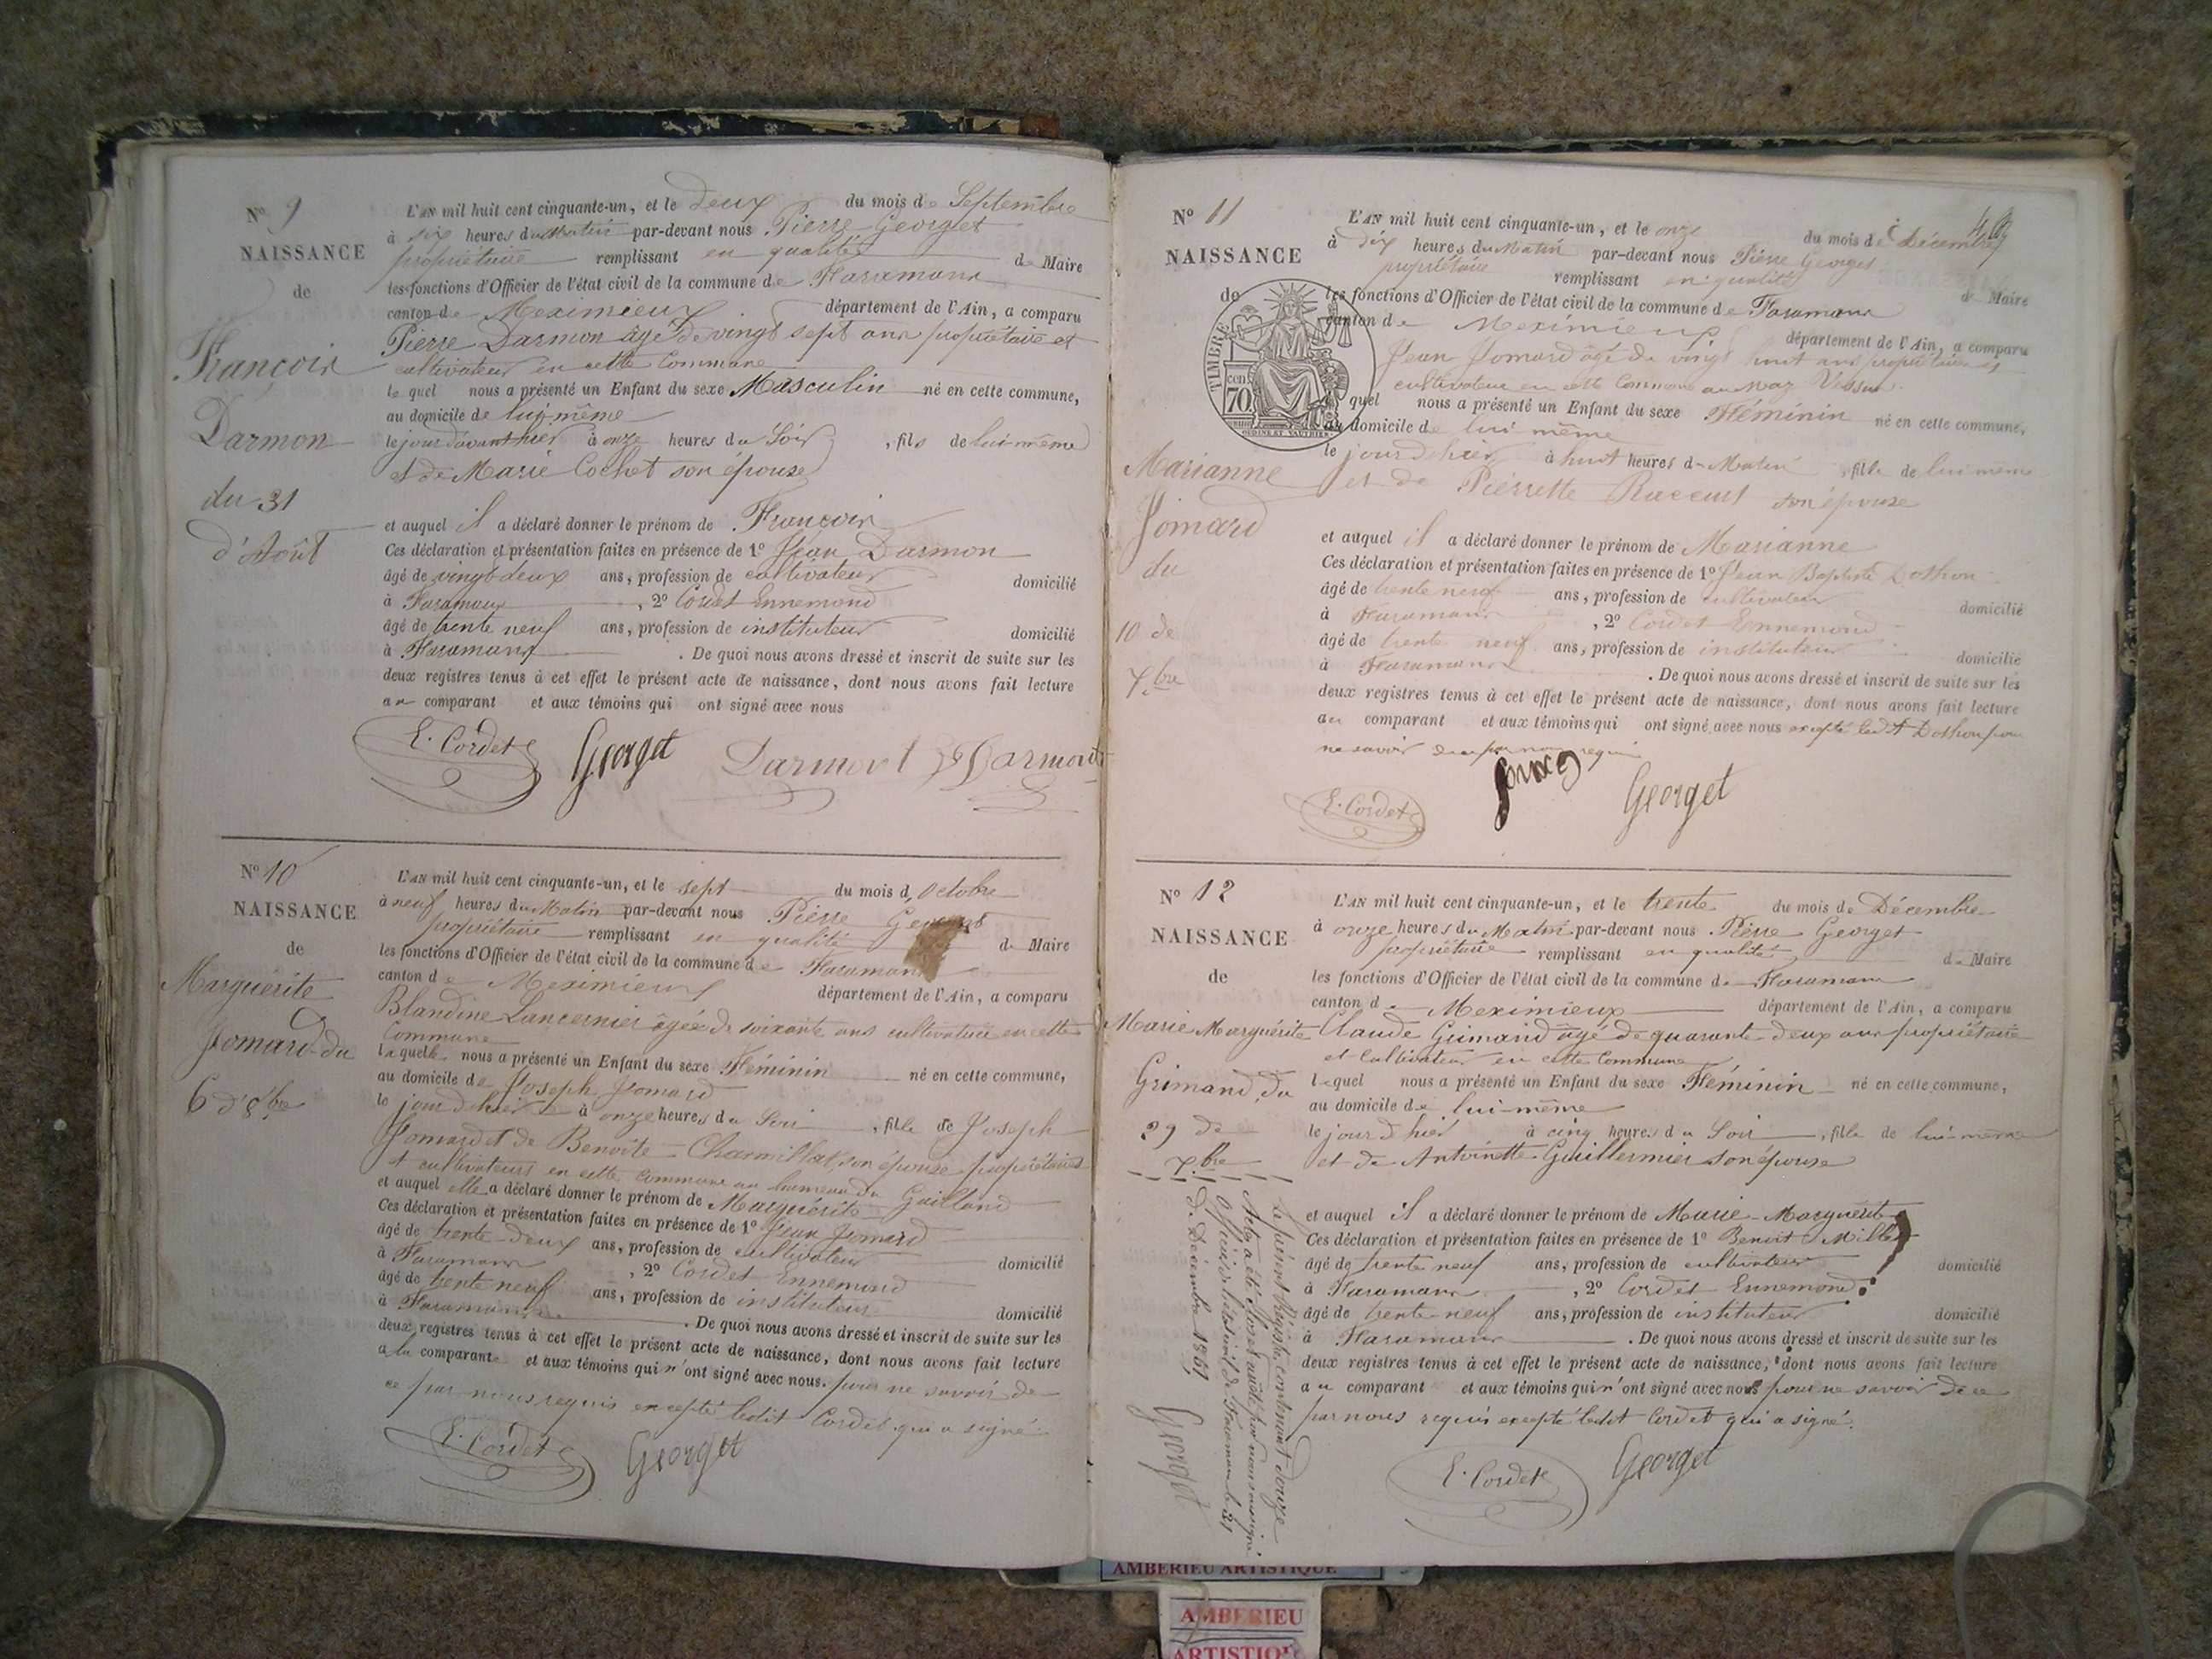 N° 9
NAISSANCE
de
François
Darmon
du 31
d'Août
L'AN mil huit cent cinquante-un, et le deux du mois de Septembre
à six heures du Matin par-devant nous Pierre Georget
propriétaire remplissant en qualité de Maire
les fonctions d'Officier de l'état civil de la commune de Faramans
canton de Meximieux département de l'Ain, a comparu
Pierre Darmon âgé de vingt sept ans propriétaire et
cultivateur en cette Commune
lequel nous a présenté un Enfant du sexe Masculin né en cette commune,
au domicile de lui-même
le jour d'avant hier à onze heures du Soir, fils de lui-même
et de Marie Cochet son épouse
et auquel il a déclaré donner le prénom de François
Ces déclaration et présentation faites en présence de 1° Jean Darmon
âgé de vingt deux ans, profession de cultivateur domicilié
à Faramans, 2° Cordet Ennemond
âgé de trente neuf ans, profession de instituteur domicilié
à Faramans. De quoi nous avons dressé et inscrit de suite sur les
deux registres tenus à cet effet le présent acte de naissance, dont nous avons fait lecture
au comparant et aux témoins qui ont signé avec nous
E. Cordet Georget Darmont Darmont
N° 10
NAISSANCE
de
Marguérite
Jomard du
6 d'8bre
L'AN mil huit cent cinquante-un, et le sept du mois d'Octobre
à neuf heures du Matin par-devant nous Pierre Georget
propriétaire remplissant en qualité de Maire
les fonctions d'Officier de l'état civil de la commune de Faramans
canton de Meximieux département de l'Ain, a comparu
Blandine Lancernier âgée de soixante ans cultivatrice en cette
Commune
laquelle nous a présenté un Enfant du sexe Féminin né en cette commune,
au domicile de Joseph Jomard
le jour d'hier à onze heures du Soir, fille de Joseph
Jomard et de Benoîte Charmillat, son épouse propriétaires
et cultivateurs en cette commune au hameau du Gailland
et auquel elle a déclaré donner le prénom de Marguérite
Ces déclaration et présentation faites en présence de 1° Jean Jomard
âgé de trente-deux ans, profession de cultivateur domicilié
à Faramans, 2° Cordet Ennemond
âgé de trente neuf ans, profession de instituteur domicilié
à Faramans. De quoi nous avons dressé et inscrit de suite sur les
deux registres tenus à cet effet le présent acte de naissance, dont nous avons fait lecture
à la comparante et aux témoins qui n'ont signé avec nous. pour ne savoir de
ce par nous requis excepté ledit Cordet qui a signé
E. Cordet Georget
N° 11
NAISSANCE
de
TIMBRE
70 cen
Marianne
Jomard
du
10 de
Xbre
L'AN mil huit cent cinquante-un, et le onze du mois de Décembre
à dix heures du Matin par-devant nous Pierre Georget
propriétaire remplissant en qualité de Maire
les fonctions d'Officier de l'état civil de la commune de Faramans
canton de Meximieux département de l'Ain, a comparu
Jean Jomard âgé de vingt huit ans propriétaire et
cultivateur en cette Commune au Maz
lequel nous a présenté un Enfant du sexe Féminin né en cette commune,
au domicile de lui même
le jour d'hier à huit heures du Matin, fille de lui même
et de Pierrette son épouse
et auquel il a déclaré donner le prénom de Marianne
Ces déclaration et présentation faites en présence de 1° Jean Baptiste Dothon
âgé de trente neuf ans, profession de cultivateur domicilié
à Faramans, 2° Cordet Ennemond
âgé de trente neuf ans, profession de instituteur domicilié
à Faramans. De quoi nous avons dressé et inscrit de suite sur les
deux registres tenus à cet effet le présent acte de naissance, dont nous avons fait lecture
au comparant et aux témoins qui ont signé avec nous excepté ledit Dothon pour
ne savoir de ce par nous requis
E. Cordet Georget
N° 12
NAISSANCE
de
Marie Marguérite
Grimand, du
29 de
Xbre
L'AN mil huit cent cinquante-un, et le trente du mois de Décembre
à onze heures du Matin par-devant nous Pierre Georget
propriétaire remplissant en qualité de Maire
les fonctions d'Officier de l'état civil de la commune de Faramans
canton de Meximieux département de l'Ain, a comparu
Claude Grimand âgé de quarante-deux ans propriétaire
et Cultivateur en cette Commune
lequel nous a présenté un Enfant du sexe Féminin né en cette commune,
au domicile de lui-même
le jour d'hier à cinq heures du Soir, fille de lui-même
et de Antoinette Guillermier son épouse
et auquel il a déclaré donner le prénom de Marie-Marguérite
Ces déclaration et présentation faites en présence de 1° Benoit Millet
âgé de trente neuf ans, profession de cultivateur domicilié
à Faramans, 2° Cordet Ennemond
âgé de trente-neuf ans, profession de instituteur domicilié
à Faramans. De quoi nous avons dressé et inscrit de suite sur les
deux registres tenus à cet effet le présent acte de naissance, dont nous avons fait lecture
au comparant et aux témoins qui n'ont signé avec nous pour ne savoir de ce
par nous requis excepté ledit Cordet qui a signé.
E. Cordet Georget
Le présent Registre contenant douze
Actes a été clos et arrêté par nous soussigné
Officier de l'état civil de Faramans le 31
Décembre 1851
Georget
AMBERIEU ARTISTIQUE
AMBERIEU
ARTISTIQUE